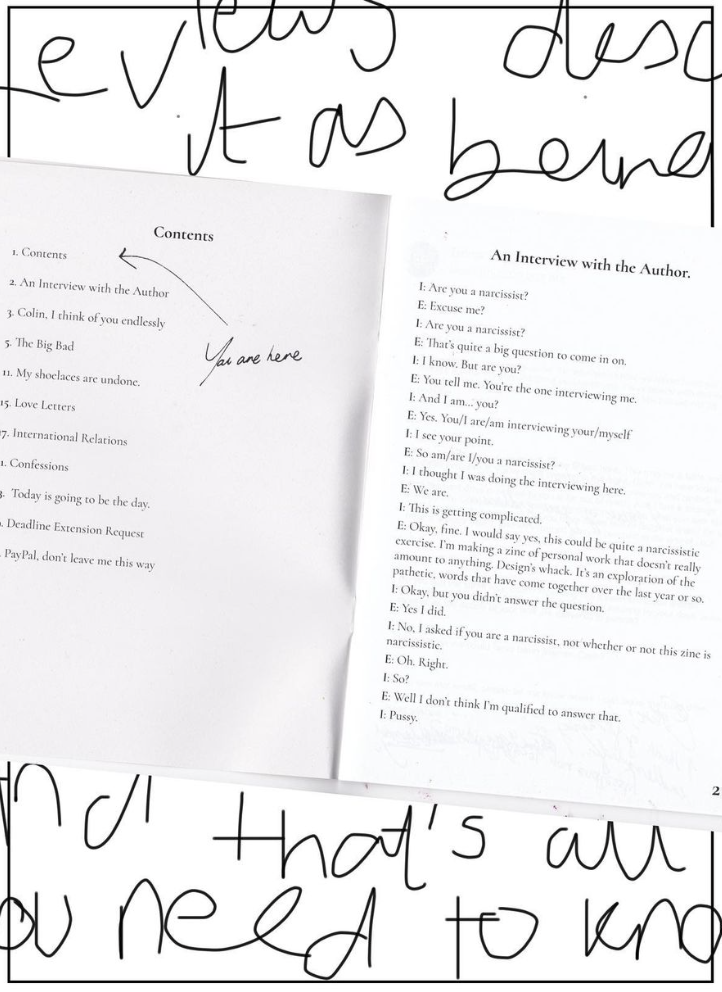 desc
it as being
Contents
1. Contents
2. An Interview with the Author
3. Colin, I think of you endlessly
5. The Big Bad
11. My shoelaces are undone.
15. Love Letters
7. International Relations
1. Confessions
3. Today is going to be the day.
. Deadline Extension Request
PayPal, don't leave me this way
You are here
An Interview with the Author.
I: Are you a narcissist?
E: Excuse me?
I: Are you a narcissist?
E: That's quite a big question to come in on.
I: I know. But are you?
E: You tell me. You're the one interviewing me.
I: And I am... you?
E: Yes. You/I are/am interviewing your/myself
I: I see your point.
E: So am/are I/you a narcissist?
I: I thought I was doing the interviewing here.
E: We are.
I: This is getting complicated.
E: Okay, fine. I would say yes, this could be quite a narcissistic
exercise. I'm making a zine of personal work that doesn't really
amount to anything. Design's whack. It's an exploration of the
pathetic, words that have come together over the last year or so.
I: Okay, but you didn't answer the question.
E: Yes I did.
I: No, I asked if you are a narcissist, not whether or not this zine is
narcissistic.
E: Oh. Right.
I: So?
E: Well I don't think I'm qualified to answer that.
I: Pussy.
2
nd that's all
ou need to kno